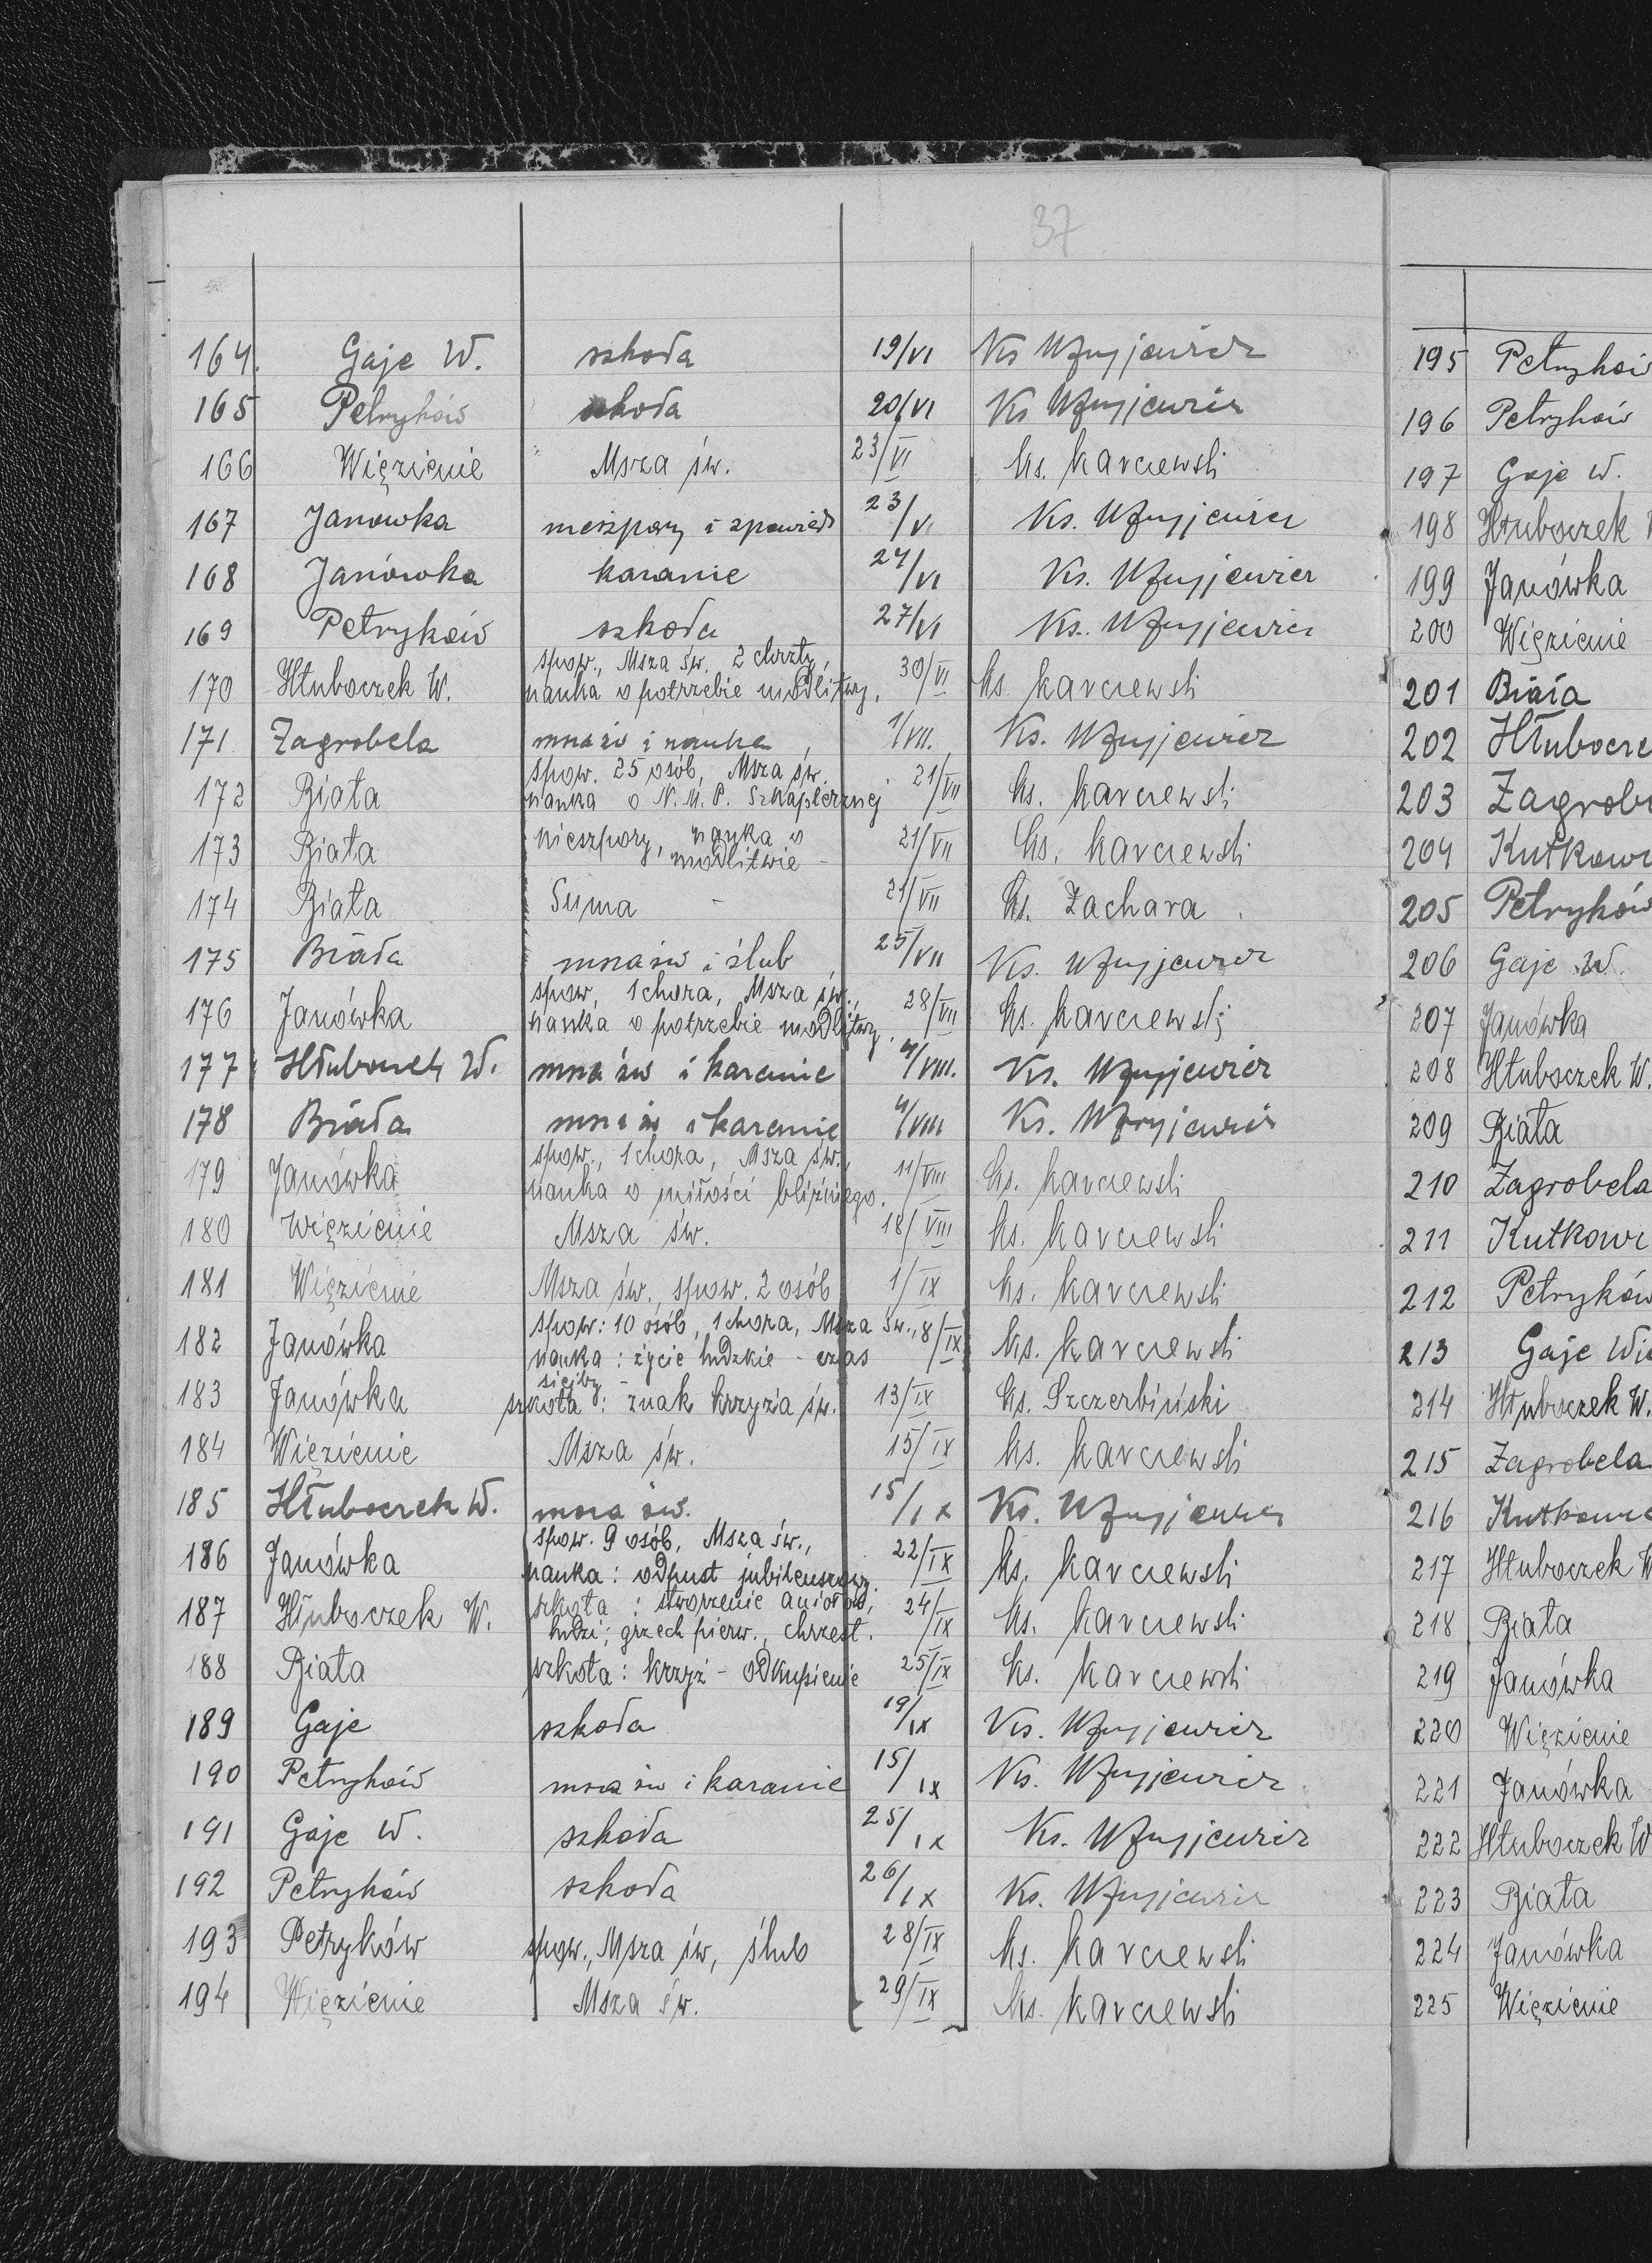 37
164. Gaje W. szkoła 19/VI Ks
165 Petryków szkoła 20/VI Ks
166 Więzienie Msza św. 23/VI ks. Karczewski
167 Janowka nieszpory i spowiedź 23/VI Ks.
168 Janówka kazanie 24/VI Ks.
169 Petryków szkoła 27/VI Ks.
spow., Msza św. 2 chrzty,
170 Hłuboczek W. nauka o potrzebie modlitwy. 30/VI ks. Karczewski
171 Zagrobela msza św i nauka, 1/VII. Ks.
spow. 25 osób, Msza św.
172 Biała nauka o N.M.P. Szkaplerznej 21/VII ks. Karczewski
173 Biała nieszpory, nauka o 21/VII ks. Karczewski
modlitwie -
174 Biała Suma - 21/VII ks. Zachara.
175 Biała msza św i ślub 25/VII Ks.
spow, 1 chora, Msza św.,
176 Janówka nauka o potrzebie modlitwy. 28/VII ks. Karczewski
177 Hłuboczek W. msza św i kazanie 4/VIII. Ks.
178 Biała msza św i kazanie 4/VIII Ks.
spow., 1 chora, Msza św.,
179 Janówka nauka o miłości bliźniego. 11/VIII ks. Karczewski
180 Więzienie Msza św. 18/VIII ks. Karczewski
181 Więzienie Msza św., spow. 2 osób 1/IX ks. Karczewski
spow: 10 osób, 1 chora, Msza św., 8/IX
182 Janówka nauka: życie ludzkie - czas ks. Karczewski
siejby -
183 Janówka szkoła: znak krzyża św. 13/IX ks. Szczerbiński
184 Więzienie Msza św. 15/IX ks. Karczewski
185 Hłuboczek W. msza św. 15/IX Ks.
spow. 9 osób, Msza św.,
186 Janówka nauka: odpust jubileuszowy. 22/IX ks. Karczewski
187 Hłuboczek W. szkoła: stworzenie aniołów, 24/IX ks. Karczewski
ludzi; grzech pierw., chrzest.
188 Biała szkoła: krzyż - odkupienie 25/IX ks. Karczewski
189 Gaje szkoła 19/IX Ks.
190 Petryków msza św i kazanie 15/IX Ks.
191 Gaje W. szkoła 25/IX Ks.
192 Petryków szkoła 26/IX Ks.
193 Petryków spow., Msza św, ślub 28/IX ks. Karczewski
194 Więzienie Msza św. 29/IX ks. Karczewski
195 Petryków
196 Petryków
197 Gaje W.
198 Hłuboczek
199 Janówka
200 Więzienie
201 Biała
202 Hłubocze
203 Zagrobe
204 Kutkow
205 Petryków
206 Gaje W.
207 Janówka
208 Hłuboczek W.
209 Biała
210 Zagrobela
211 Kutkow
212 Petryków
213 Gaje Wie
214 Hłuboczek W.
215 Zagrobela
216 Kutkow
217 Hłuboczek W
218 Biała
219 Janówka
220 Więzienie
221 Janówka
222 Hłuboczek W
223 Biała
224 Janówka
225 Więzienie